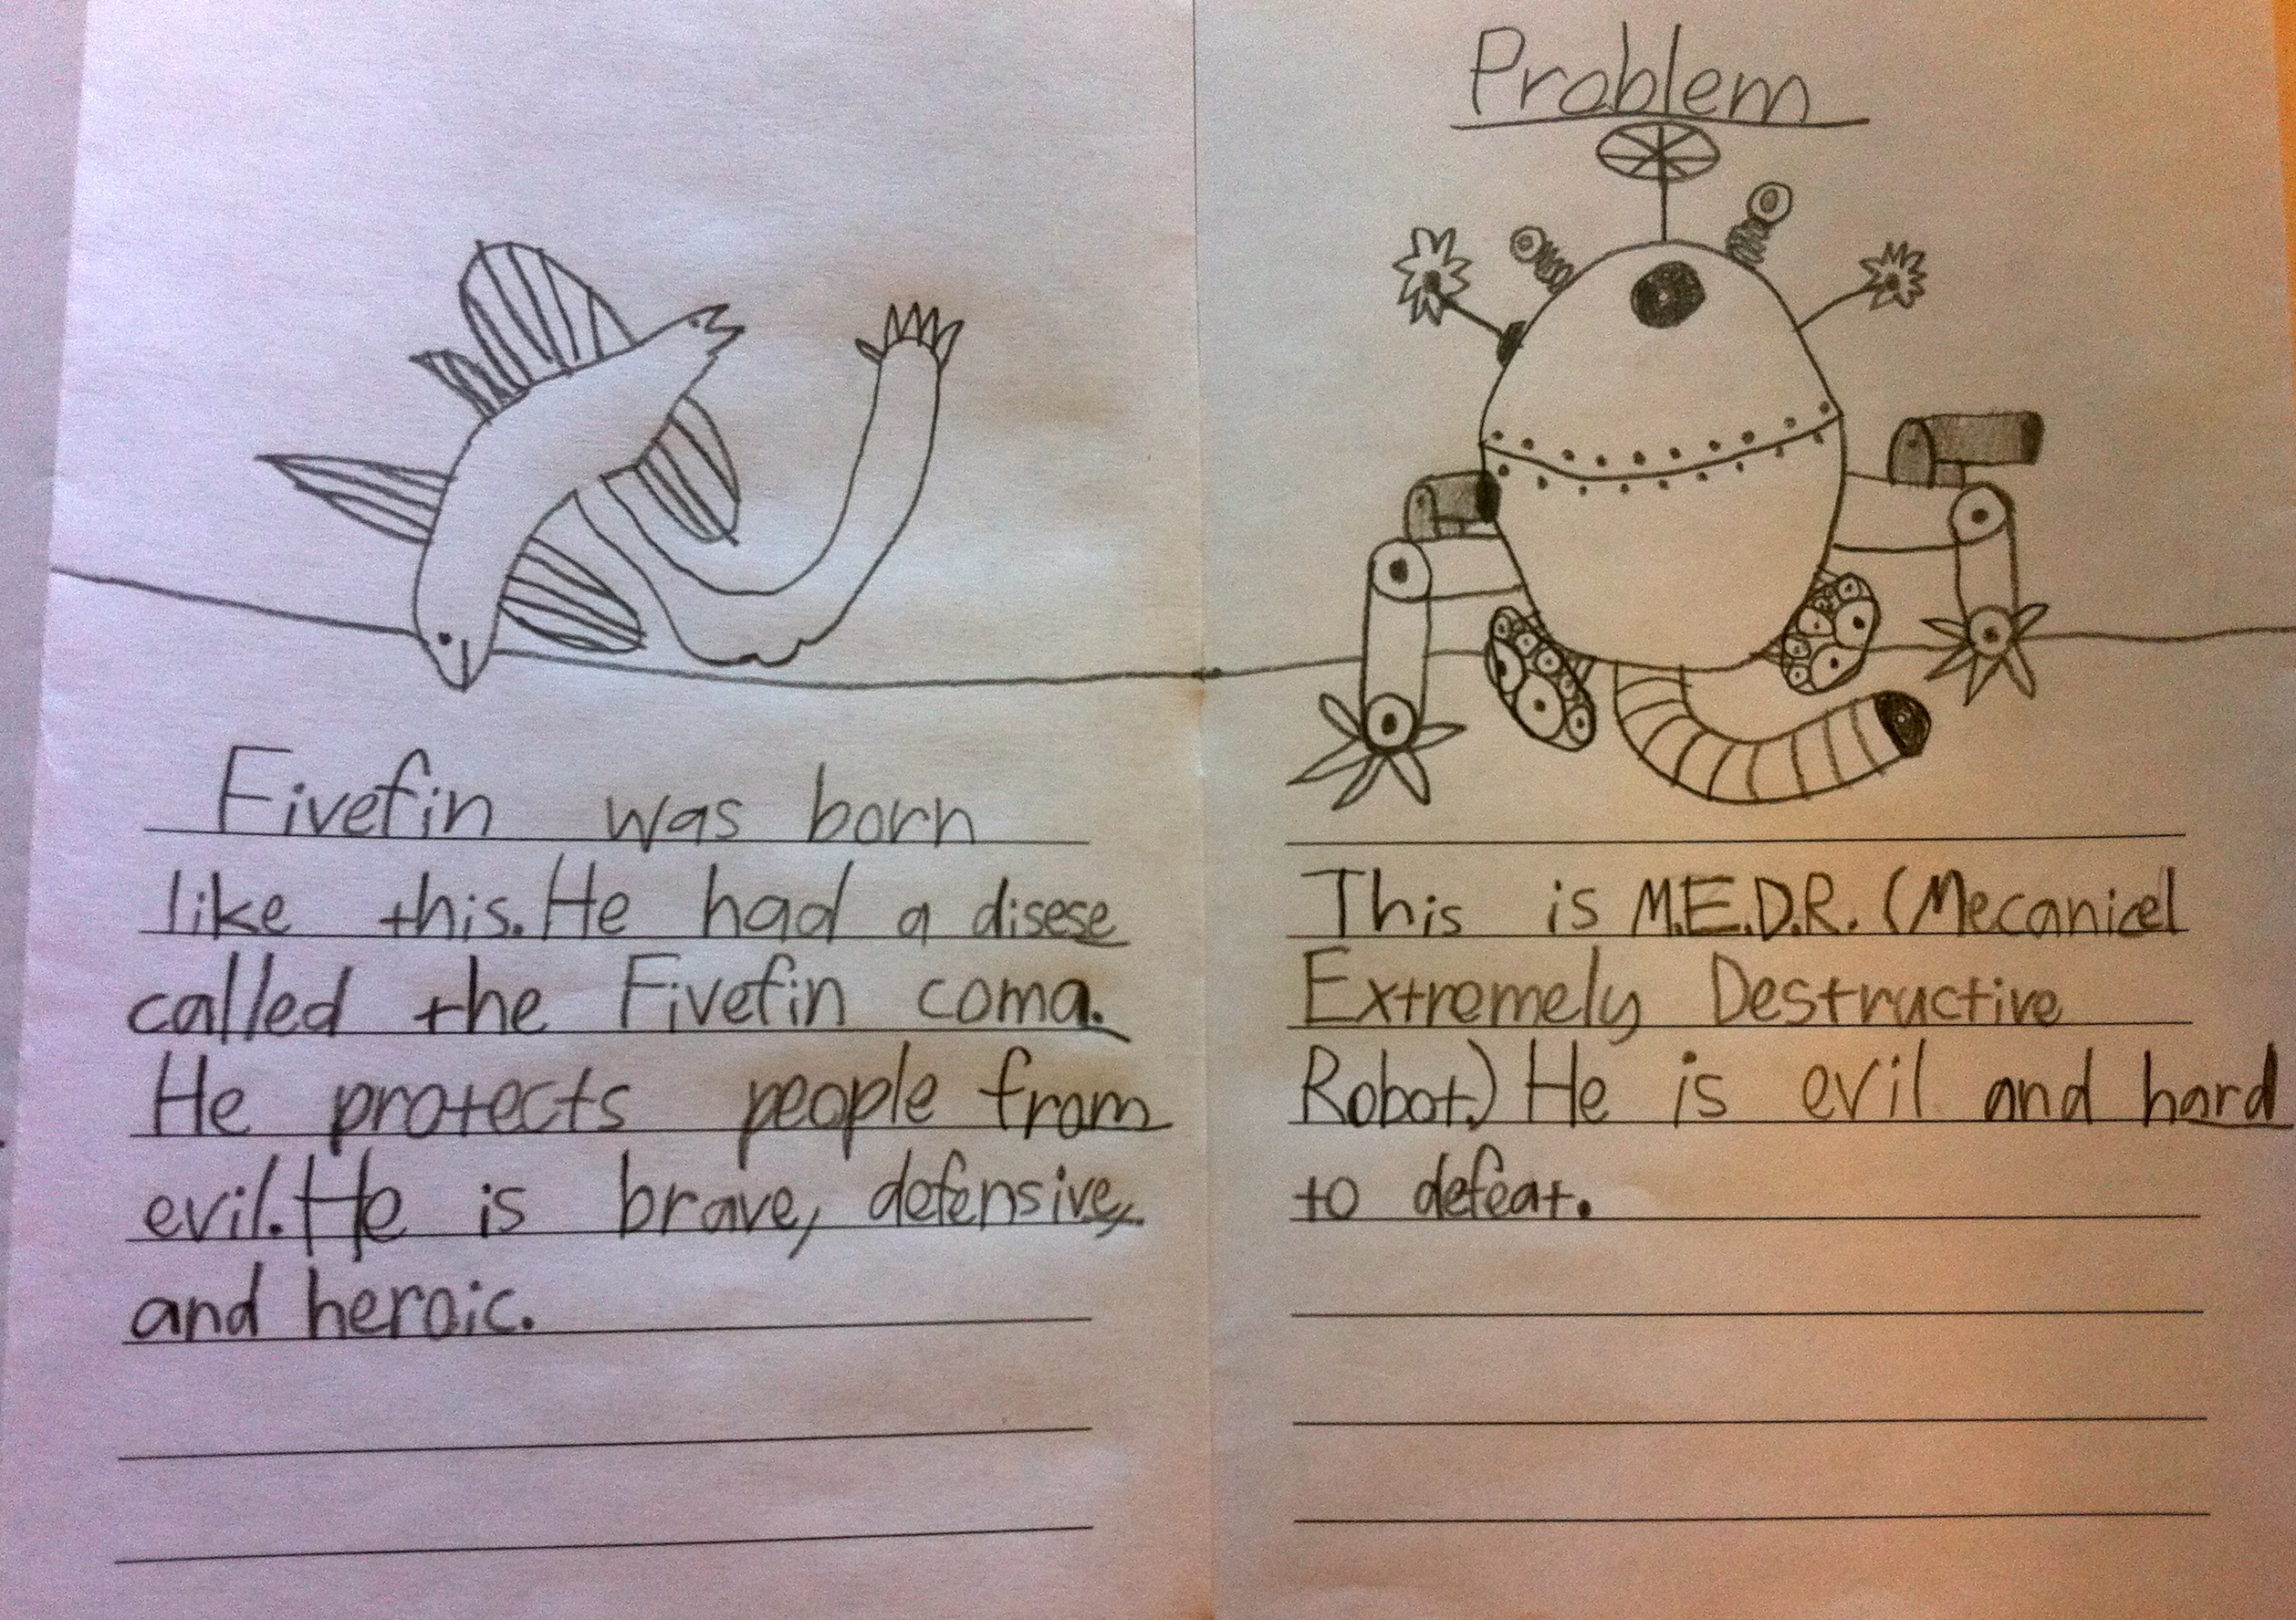 Fivefin was born
like this. He had a disese
called the Fivefin coma.
He protects people from
evil. He is brave, defensive,
and heroic.
Problem
This is M.E.D.R. (Mecanicel
Extremely Destructive
Robot.) He is evil and hard
to defeat.